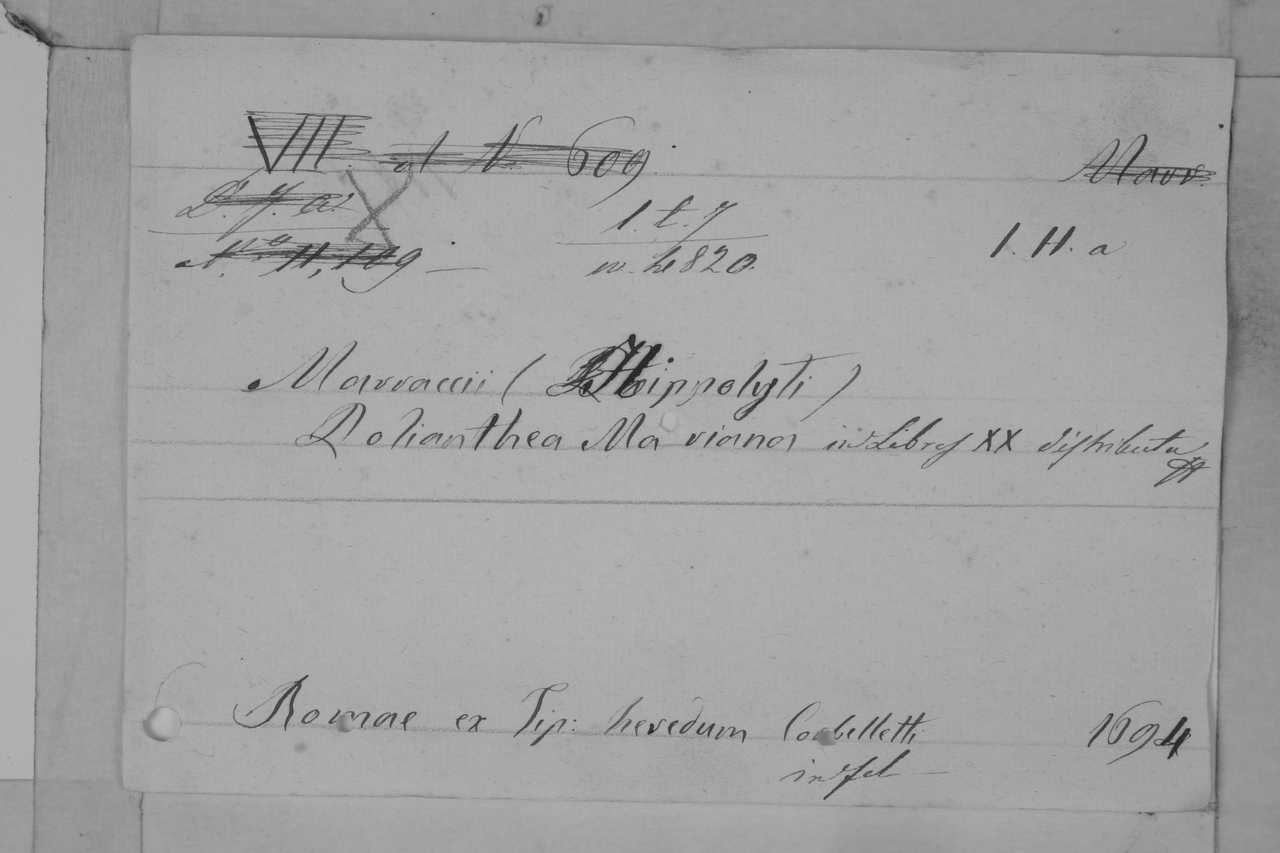 VII. al N. 609. Marr.
D. J. a. 1. t. 7
N.ro H, 109 — n. 4820. 1. H. a
Marraccii ( Hippolyti )
Polianthea Mariana in Libros XX distributa
Romae ex Tip: heredum Corbelletti 1694
in fol —